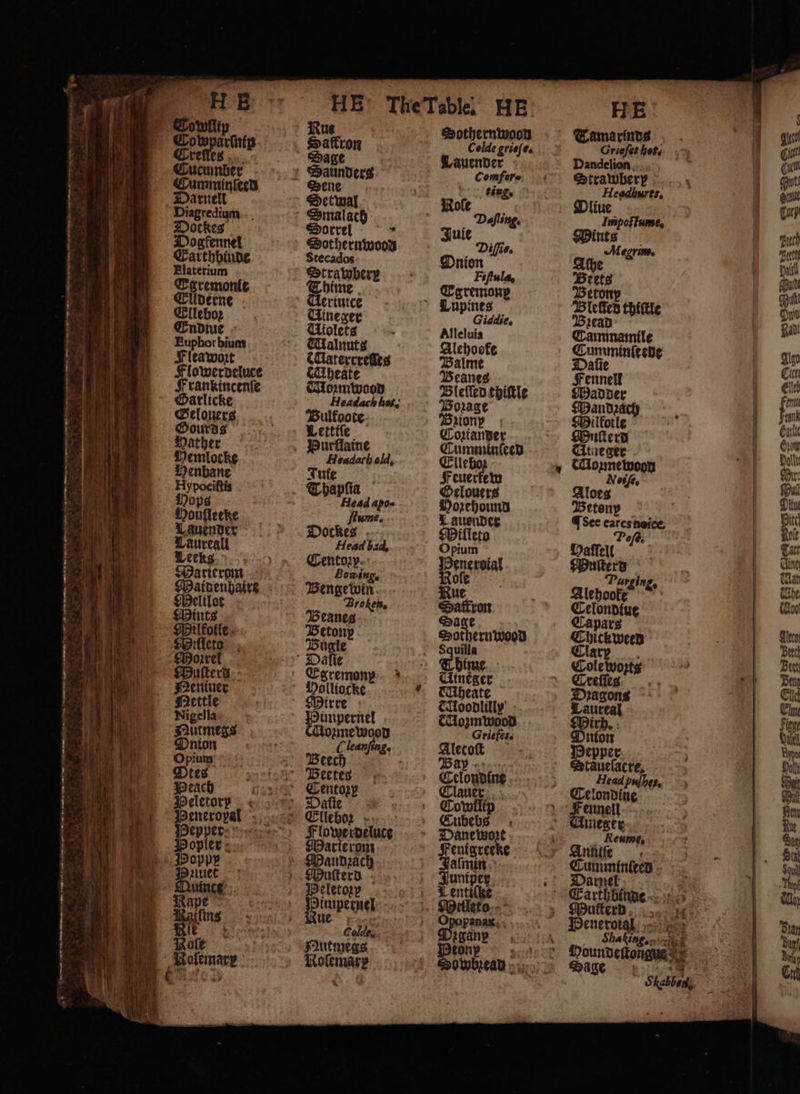 HE TheTable. HE
HB
Cowslip
Cowparsnip
Cresses
Cucumber
Cumminseed
Darnell
Diagredium
Dockes
Dogfennel
Earthbinde
Elaterium
Egremonie
Elderne
Ellebor
Endiue
Euphorbium
Fleawort
Flowerdeluce
Frankincense
Garlicke
Gelouers
Gourds
Hather
Hemlocke
Henbane
Hypocistis
Hops
Housleeke
Lauender
Laureall
Leeks
Marierom
Maidenhaire
Melilot
Mints
Milfoile
Misleto
Morrel
Musterd
Neniuer
Nettle
Nigella
Nutmegs
Onion
Opium
Otes
Peach
Peletory
Peneroyal
Pepper
Popler
Poppy
Priuet
Quince
Rape
Raisins
Rose
Rosemary
Rue
Saffron
Sage
Saunders
Sene
Setwal
Smalach
Sorrel
Sothernwood
Stecados
Strawbery
Thime
Veriuice
Vineger
Violets
Walnuts
Watercresses
Wheate
Wormwood
Headach hot,
Bulfoote
Lettise
Purslaine
Headach old,
Iuie
Thapsia
Head apo-
stume.
Dockes
Head bad,
Centory.
Bowing,
Bengewin
Broken,
Beanes
Betony
Bugle
Dasie
Egremony
Holliocke
Mirre
Pimpernel
Wormewood
Cleansing.
Beech
Beetes
Centory
Dasie
Ellebor
Flowerdeluce
Marierom
Mandrach
Musterd
Peletory
Pimpernel
Rue
Colde,
Nutmegs
Rosemary
Sothernwood
Colde griefe.
Lauender
Comfor-
ting.
Rose
Dasling.
Iuie
Dissie.
Onion
Fistula,
Egremony
Lupines
Giddie,
Alleluia
Alehoofe
Balme
Beanes
Blessed thistle
Borage
Briony
Coriander
Cumminseed
Ellebor
Feuerfew
Gelouers
Horehound
Lauender
Misleto
Opium
Peneroial
Rose
Rue
Saffron
Sage
Sothernwood
Squilla
Thime
Vineger
Wheate
Woodlilly
Wormwood
Griefes.
Alecost
Bay
Celondine
Clauer
Cowslip
Cubebs
Danewort
Fenigreeke
Iasmin
Iuniper
Lentiske
Misleto
Opopanax
Organy
Peony
Sowbread
HE
Tamarinds
Griefes hot.
Dandelion
Strawbery
Headhurts,
Oliue
Impostume,
Mints
Megrim.
Ashe
Beets
Betony
Blessed thistle
Bread
Cammamile
Cumminseede
Dasie
Fennell
Madder
Mandrach
Milfoile
Musterd
Vineger
Wormewood
Noise,
Aloes
Betony
¶ See eares noice.
Pose.
Hassell
Musterd
Purging,
Alehoofe
Celondiue
Capars
Chickweed
Clary
Coleworts
Cresses
Dragons
Laureal
Mirh.
Onion
Pepper
Stauesacre,
Head pushes,
Celondine
Fennell
Vineger
Reume,
Annise
Cumminseed
Darnel
Earthbinde
Musterd
Peneroial
Shaking.
Houndestongue
Sage
Skabbed,